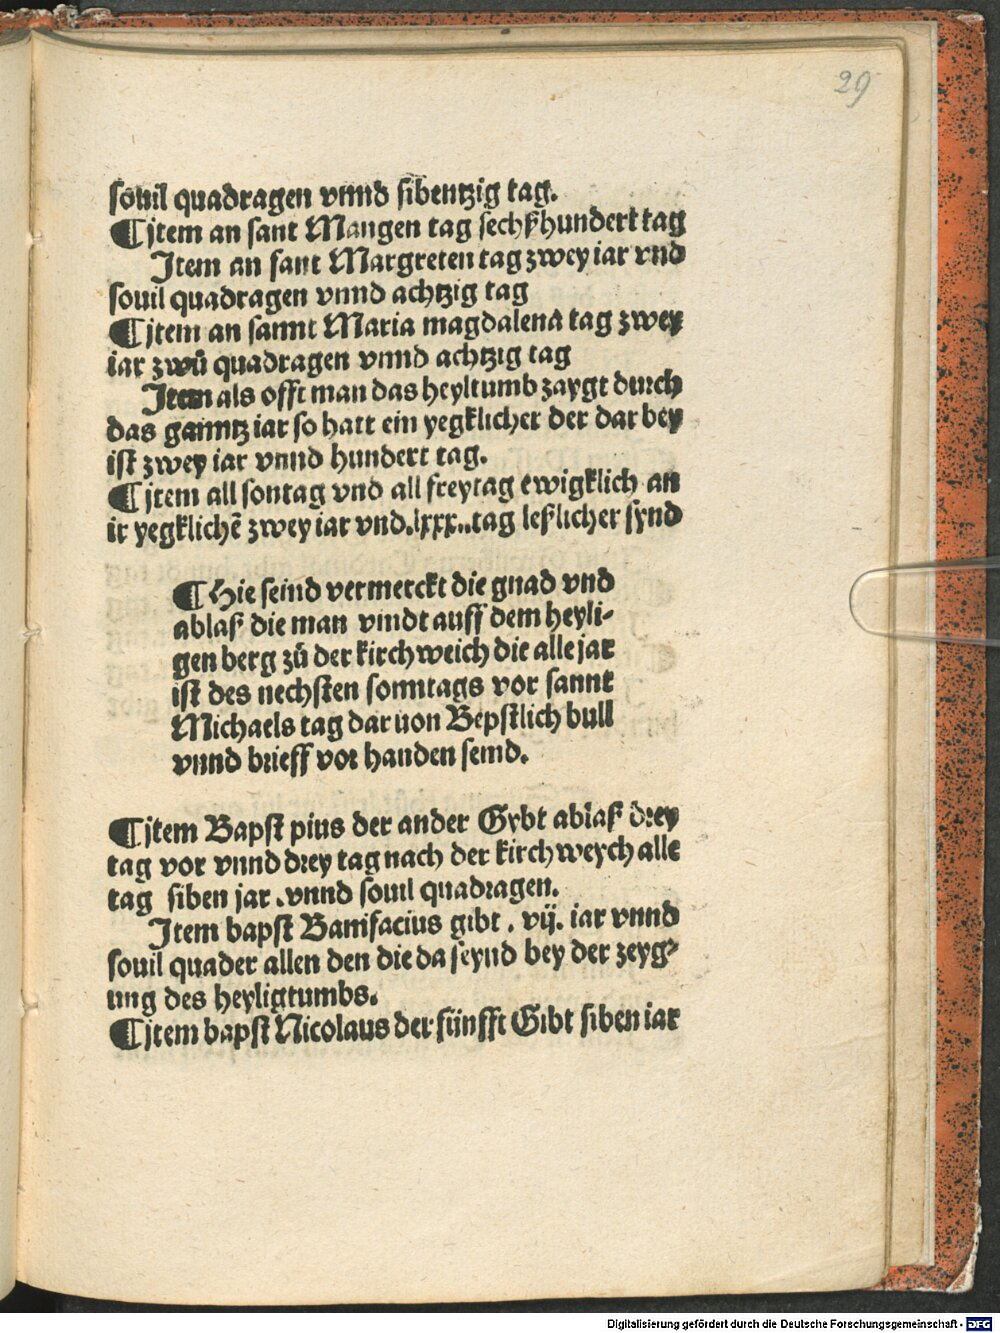 29
souil quadragen vnnd sibentzig tag.
¶ jtem an sant Mangen tag sechßhundert tag
Jtem an sant Margreten tag zwey iar vnd
souil quadragen vnnd achtzig tag
¶ jtem an sannt Maria magdalena tag zwey
iar zwů quadragen vnnd achtzig tag
Jtem als offt man das heyltumb zaygt durch
das ganntz iar so hatt ein yegklicher der dar bey
ist zwey iar vnnd hundert tag.
¶ jtem all sontag vnd all freytag ewigklich an
ir yegklichē zwey iar vnd.lxxx..tag leßlicher synd
¶ Hie seind vermerckt die gnad vnd
ablaß die man vindt auff dem heyli-
gen berg zů der kirchweich die alle jar
ist des nechsten sonntags vor sannt
Michaels tag dar uon Bepstlich bull
vnnd brieff vor handen seind.
¶ jtem Bapst pius der ander Gybt ablaß drey
tag vor vnnd drey tag nach der kirchweych alle
tag siben jar .vnnd souil quadragen.
Jtem bapst Banifacius gibt . vij. iar vnnd
souil quader allen den die da seynd bey der zeyg-
ung des heyligtumbs.
¶ jtem bapst Nicolaus der fünfft Gibt siben iar
Digitalisierung gefördert durch die Deutsche Forschungsgemeinschaft - DFG